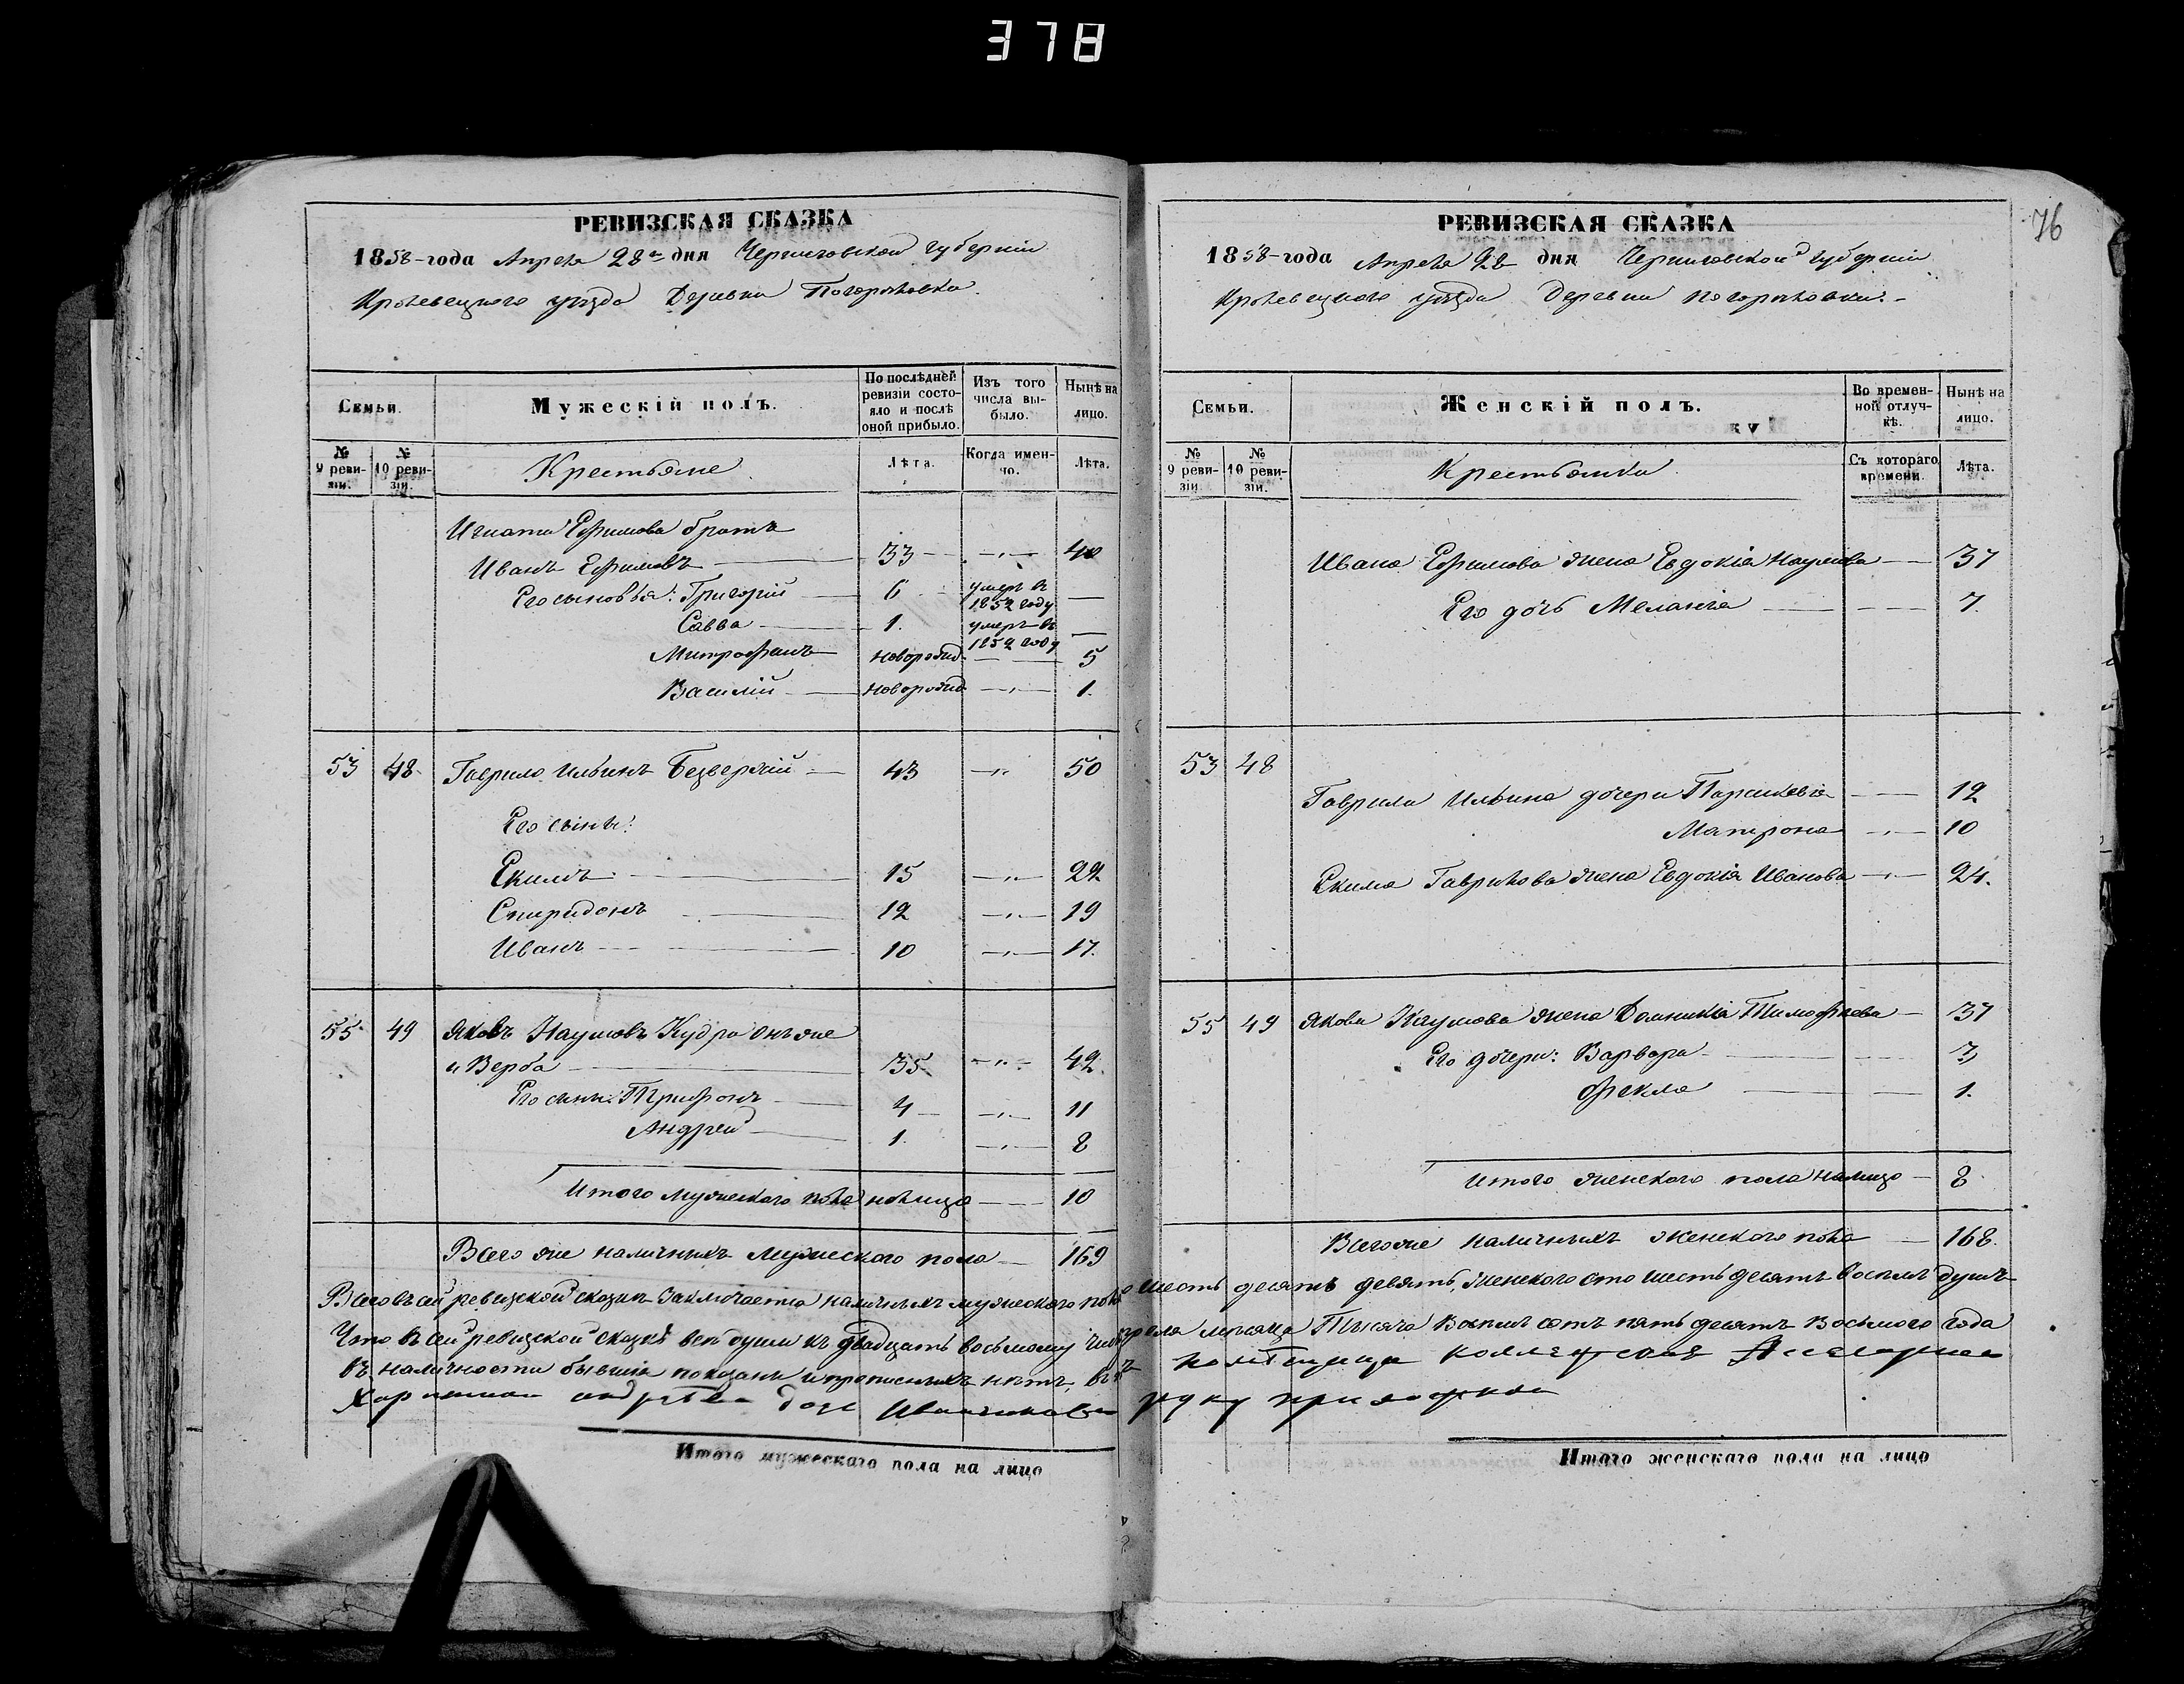 378
РЕВИЗСКАЯ СКАЗКА
1858 года Апреля 28 дня Черниговской губернии
Кролевецкого уезда Деревни Погореловки.
Семьи.
Мужескій полъ.
По послѣдней ревизіи состояло и послѣ оной прибыло.
Изъ того числа выбыло.
Нынѣ на лицо.
№ 9 ревизіи.
№ 10 ревизіи.
Крестьяне
Лѣта.
Когда именно.
Лѣта.
Игната Ефимова братъ
Иванъ Ефимовъ 33 40
Его сыновья: Григорій 6 умеръ въ 1852 году
Савва 1. умеръ въ 1852 году
Митрофанъ новорожд. 5
Василій новорожд. 1.
53 48 Гаврило Ильинъ Безверхій 43 50
Его сынъ:
Екимъ 15 22
Спиридонъ 12 19
Иванъ 10 17.
55 49 Яковъ Наумовъ Кудра онъ же
и Верба 35 42.
Его сынъ: Трифонъ 4 11
Андрей 1. 8
Итого мужеского пола налицо 10
Всего же наличныхъ мужеского пола 169
Итого мужескаго пола на лицо
76
РЕВИЗСКАЯ СКАЗКА
1858 года Апреля 28 дня Черниговской губерніи
Кролевецкого уезда Деревни Погореловки.
Семьи.
Женскій полъ.
Во временной отлучкѣ.
Нынѣ на лицо.
№ 9 ревизіи.
№ 10 ревизіи.
Крестьянки
Съ котораго времени.
Лѣта.
Ивана Ефимова жена Евдокія Наумова 37
Его дочь Меланія 7.
53 48
Гаврила Ильина дочери Парасковія 12
Матрона 10
Екима Гаврилова жена Евдокія Иванова 24.
55 49 Якова Наумова жена Домникія Тимофеева 37
Его дочери: Варвара 3
Фекла 1.
Итого женского пола налицо 8
Всего же наличныхъ женского пола 168.
Всего въ сей ревизской сказке заключается наличныхъ мужеского пола шесть десятъ девять, женского сто шесть десятъ восемь душъ
Что въ сей ревизской сказкѣ все души къ двадцать восьмому числу Апреля месяца Тысяча восемь сотъ пять десятъ восьмого года
въ наличности бывшія показаны и прописныхъ нетъ, въ помещица коллежская Ассесорша
дочь руку приложила
Итого женскаго пола на лицо